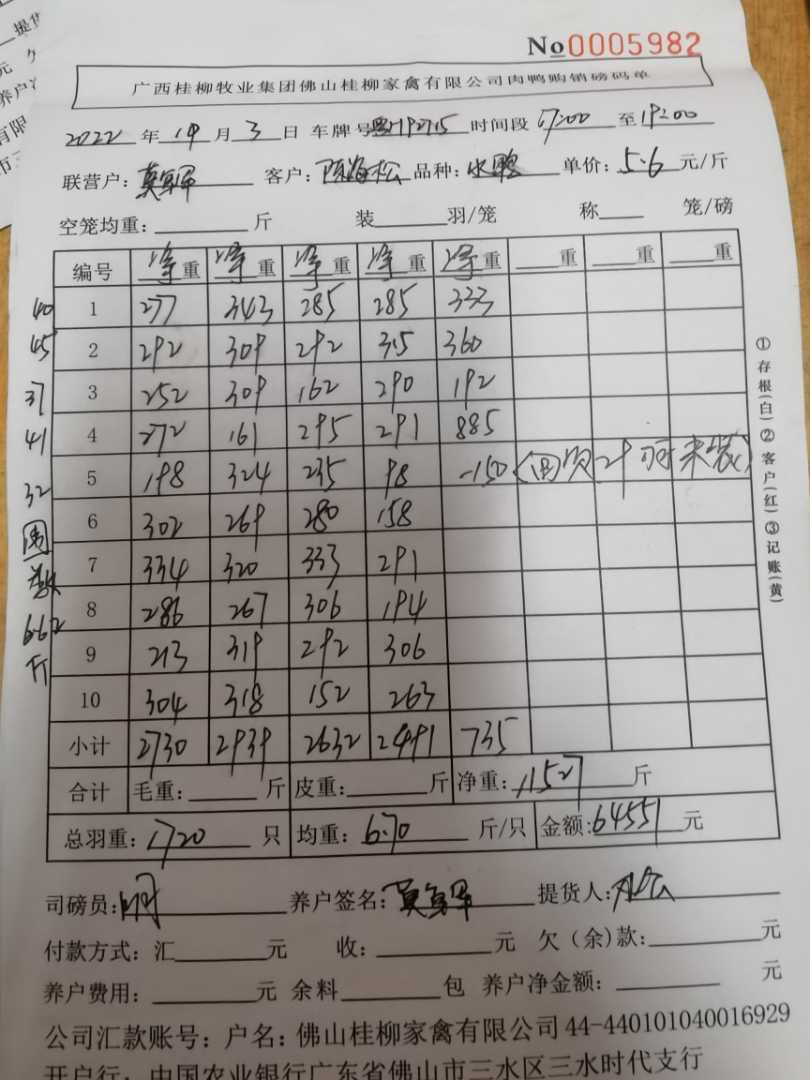 No 0005982
广西桂柳牧业集团佛山桂柳家禽有限公司肉鸭购销磅码单
2022 年 月 3 日 车牌号 时间段 17:00 至 19:00
联营户: 莫军 客户: 陈海松 品种: 水鸭 单价: 5.6 元/斤
空笼均重: 斤 装 羽/笼 称 笼/磅
编号 净重 净重 净重 净重 净重 重 重 重
1 277 343 285 285 333
2 292 309 292 315 360
3 252 309 162 290 192
4 272 161 295 291 885
5 198 324 235 98 -150
6 302 269 280 158
7 334 320 333 291
8 286 267 306 194
9 213 319 292 306
10 304 318 152 263
小计 2730 2939 2632 2491 735
合计 毛重: 斤 皮重: 斤 净重: 11527 斤
总羽重: 1720 只 均重: 6.70 斤/只 金额: 64551 元
司磅员: 养户签名: 莫军 提货人:
付款方式: 汇 元 收: 元 欠(余)款: 元
养户费用: 元 余料 包 养户净金额: 元
公司汇款账号: 户名: 佛山桂柳家禽有限公司 44-440101040016929
开户行: 中国农业银行广东省佛山市三水区三水时代支行
①存根(白)②客户(红)③记账(黄)
40
45
37
41
32
6.62
斤